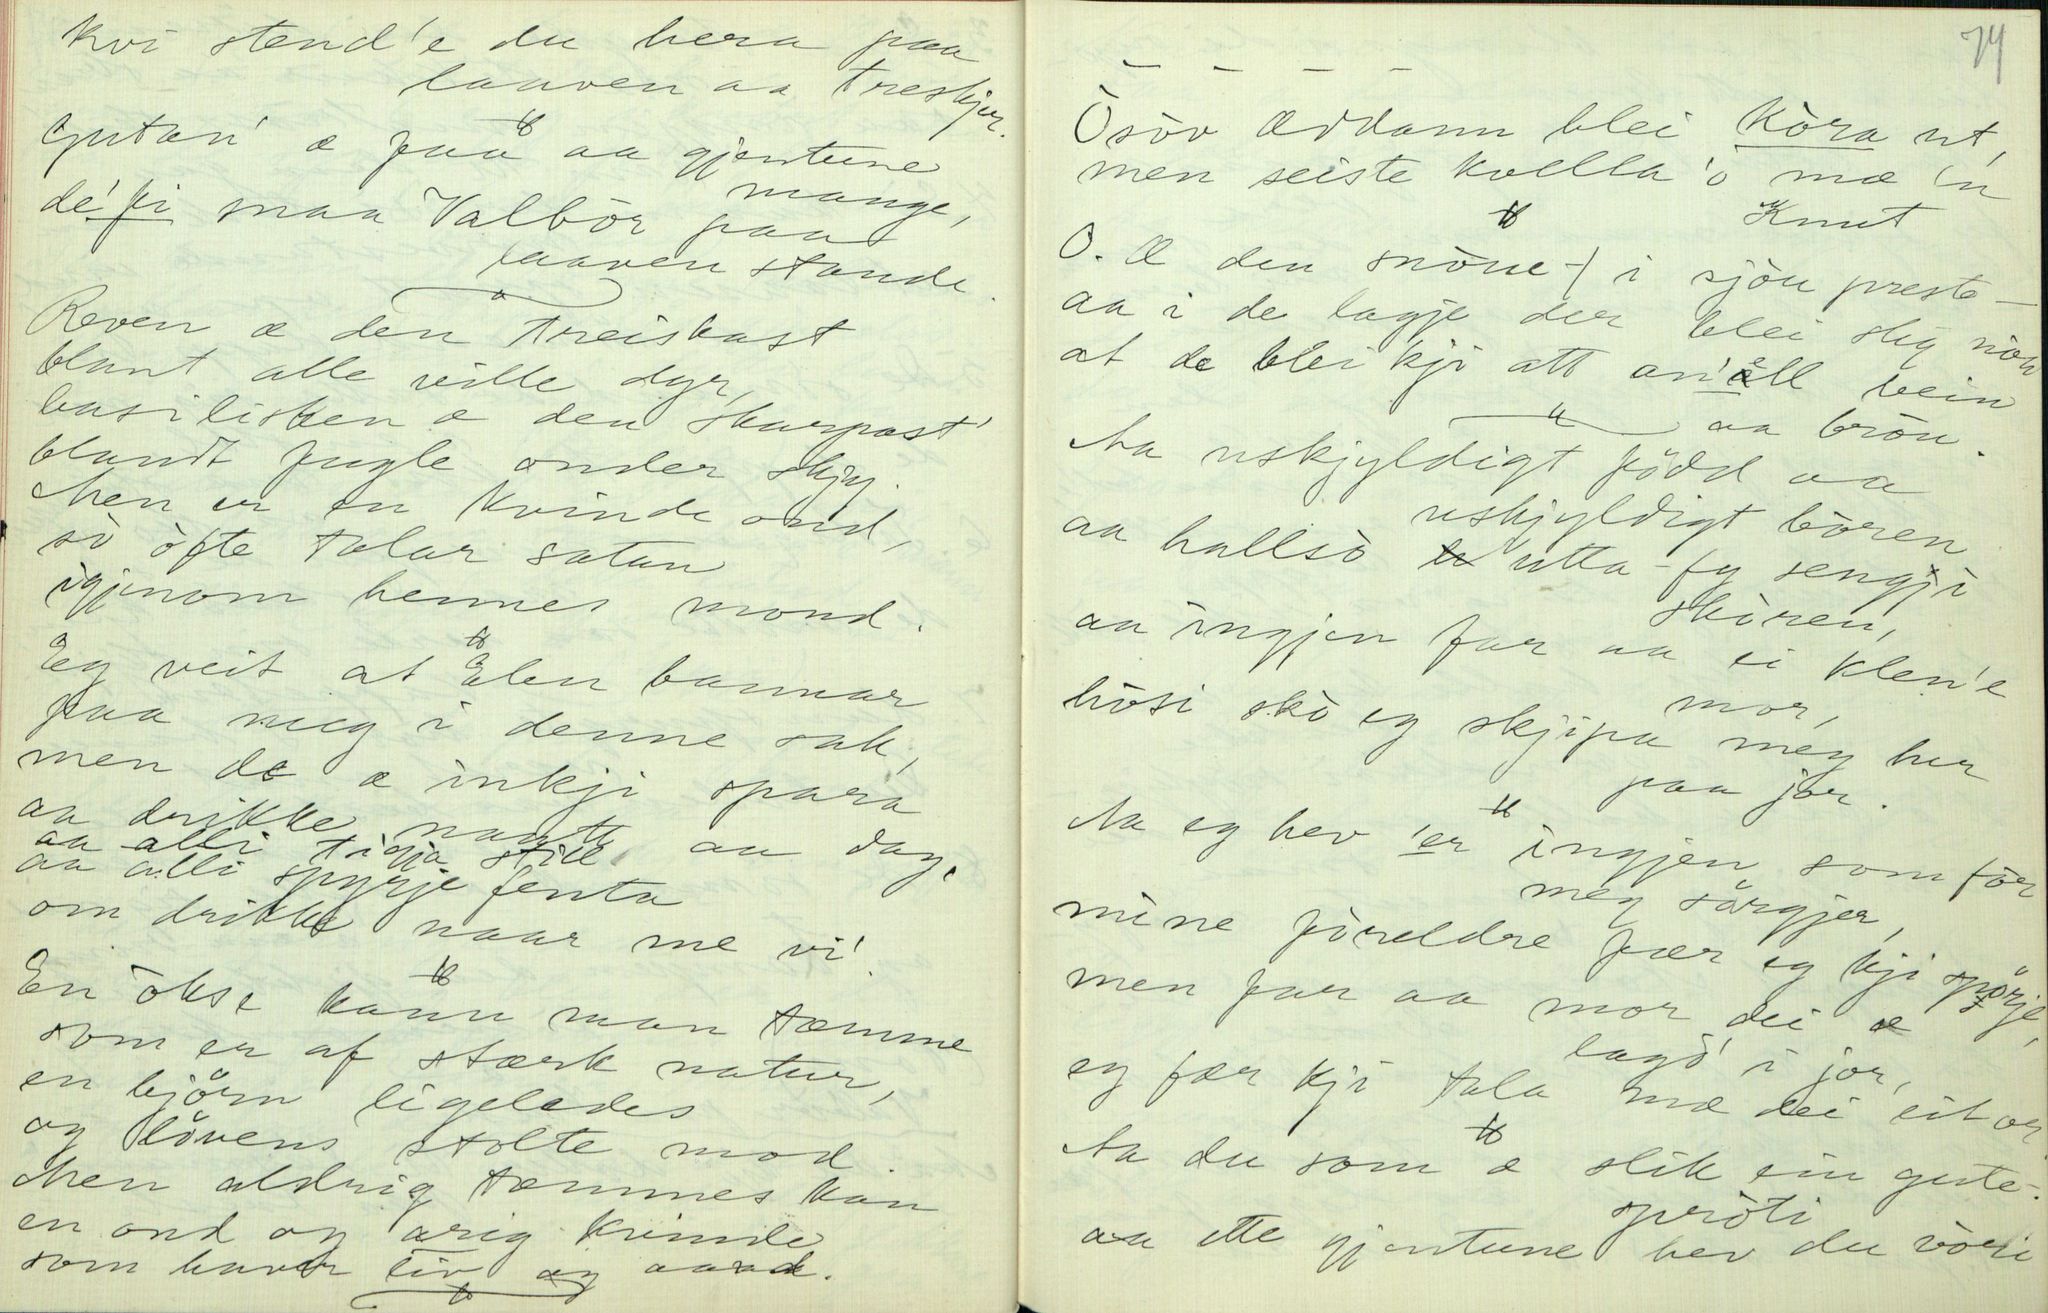 Kvi stend'e du hera paa
laaven aa treskjer.
Gutan' æ faa aa gjentune
mange,
dé'fi maa Valbör paa
laaven stande.
Reven æ den treiskast
blant alle ville dyr,
basilisken æ den skarpast'
blandt fugle onder skjy.
Men er en kvinde ond,
sò òfte talar satan
igjenom hennes mond.
Eg veit at Elen bannar
paa meg i denne sak,
men de æ inkji spara
aa drikke naatt aa dag.
aa alli tigja still
aa alli spyrje fenta
om drikke naar me vi'.
En ökse kann man tæmme
som er af stærk natur,
en bjørn ligeledes
og lövens stolte mod.
Men aldrig tæmmes kan
en ond og arig kvinde
som haver liv og aand.
74
Òsòv Æddann blei kòra ut,
men seiste kvella 'ò mæ 'n
Knut
O. Æ den snöne - i sjòn preste-
aa i de lagje der blei slig nòn
at de blei kji att an'ell bein
aa bròn.
Aa uskjyldigt född aa
uskjyldigt bören
aa hallsò utta - fy sengji
skòren,
aa ingjen far aa ei klen'e
mor,
hòsi skò eg skjipa meg her
paa jor.
Aa eg hev 'er ingjen som för
meg sörgjer,
mine foreldre fær eg kji spörje,
men far aa mor dei æ
lagò' i jor,
eg fær kji tala mæ dei eit or
Aa du som æ slik ein gute-
spròti
aa ette gjentune hev du vòri